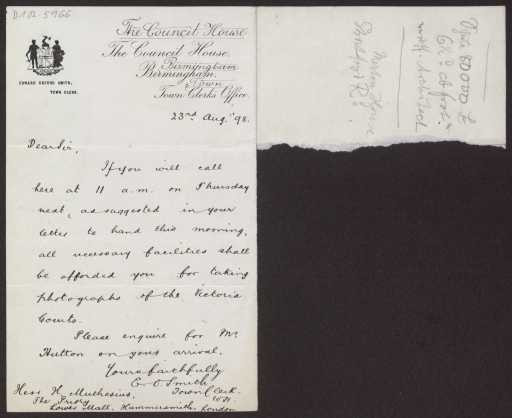 D102-5966
The Council House
The Council House,
Birmingham
Birmingham.
Town
Town Clerks Office
EDWARD ORFORD SMITH,
TOWN CLERK.
23rd Aug. '98.
Dear Sir,
If you will call
here at 11 a.m. on Thursday
next, as suggested in your
letter to hand this morning,
all necessary facilities shall
be afforded you for taking
photographs of the Victoria
Courts.
Please enquire for Mr
Hutton on your arrival.
Yours faithfully
E. O. Smith
Town Clerk.
Herr H. Muthesius,
The Priory
Lower Mall, Hammersmith, London